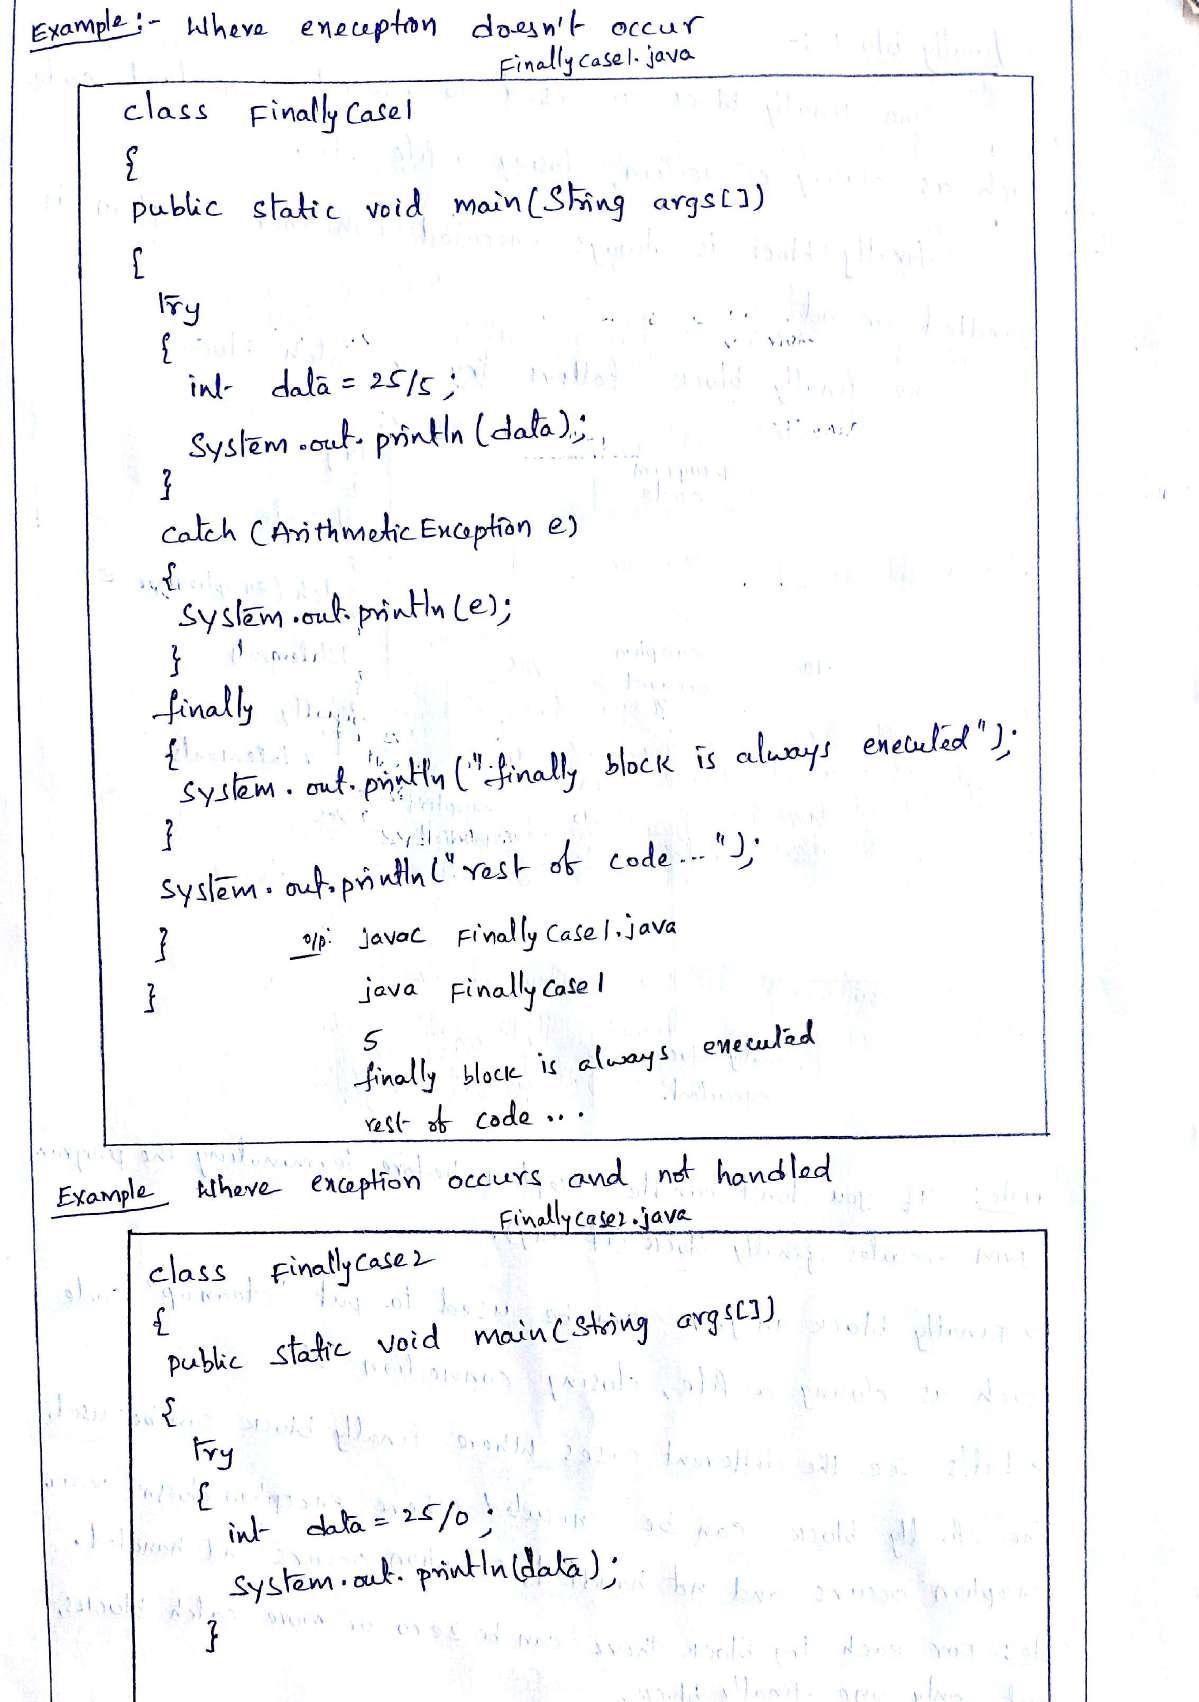 Example :- Where exeception doesn't occur
Finallycase1.java
class FinallyCase1
{
public static void main(String args[])
{
try
{
int data = 25/5;
System.out.println(data);
}
catch (ArithmeticException e)
{
System.out.println(e);
}
finally
{
System.out.println("finally block is always executed");
}
System.out.println("rest of code...");
}
o/p: javac FinallyCase1.java
}
java FinallyCase1
5
finally block is always executed
rest of code ...
Example Where exception occurs and not handled
Finallycase2.java
class FinallyCase2
{
public static void main(String args[])
{
try
{
int data = 25/0;
System.out.println(data);
}